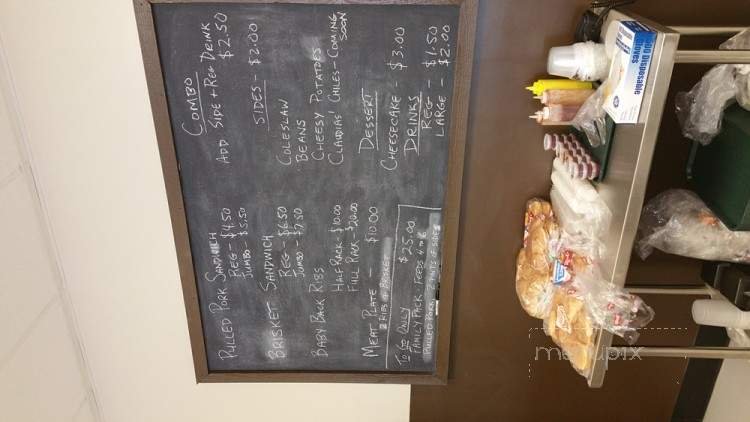 PULLED PORK SANDWICH
REG - $4.50
JUMBO - $5.50
BRISKET SANDWICH
REG - $6.50
JUMBO - $7.50
BABY BACK RIBS
HALF RACK - $10.00
FULL RACK - $20.00
MEAT PLATE - $10.00
2 RIBS & BRISKET
TO GO ONLY $25.00
FAMILY PACK - FEEDS 4 TO 6
PULLED PORK, 2 PINTS OF SIDES
COMBO
ADD SIDE + REG DRINK $2.50
SIDES - $2.00
COLESLAW
BEANS
CHEESY POTATOES
CLAUDIAS' CHILES - COMING SOON
DESSERT
CHEESECAKE - $3.00
DRINKS
REG - $1.50
LARGE - $2.00
Disposable
Gloves
menupix